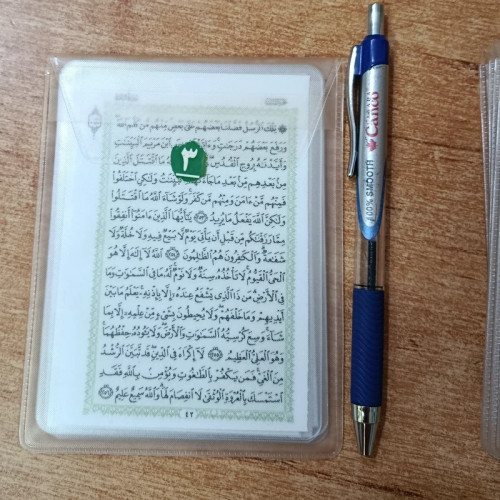 ۞ تِلْكَ ٱلرُّسُلُ فَضَّلْنَا بَعْضَهُمْ عَلَىٰ بَعْضٍ مِّنْهُم مَّن كَلَّمَ ٱللَّهُ
وَرَفَعَ بَعْضَهُمْ دَرَجَٰتٍ ٱبْنَ مَرْيَمَ ٱلْبَيِّنَٰتِ
وَأَيَّدْنَٰهُ بِرُوحِ ٱلْقُدُسِ مَا ٱقْتَتَلَ ٱلَّذِينَ
مِنۢ بَعْدِهِم مِّنۢ بَعْدِ مَا جَآءَتْهُمُ ٱلْبَيِّنَٰتُ وَلَٰكِنِ ٱخْتَلَفُوا۟
فَمِنْهُم مَّنْ ءَامَنَ وَمِنْهُم مَّن كَفَرَ وَلَوْ شَآءَ ٱللَّهُ مَا ٱقْتَتَلُوا۟
وَلَٰكِنَّ ٱللَّهَ يَفْعَلُ مَا يُرِيدُ ٢٥٣ يَٰٓأَيُّهَا ٱلَّذِينَ ءَامَنُوٓا۟ أَنفِقُوا۟
مِمَّا رَزَقْنَٰكُم مِّن قَبْلِ أَن يَأْتِىَ يَوْمٌ لَّا بَيْعٌ فِيهِ وَلَا خُلَّةٌ وَلَا
شَفَٰعَةٌ وَٱلْكَٰفِرُونَ هُمُ ٱلظَّٰلِمُونَ ٢٥٤ ٱللَّهُ لَآ إِلَٰهَ إِلَّا هُوَ
ٱلْحَىُّ ٱلْقَيُّومُ لَا تَأْخُذُهُۥ سِنَةٌ وَلَا نَوْمٌ لَّهُۥ مَا فِى ٱلسَّمَٰوَٰتِ وَمَا
فِى ٱلْأَرْضِ مَن ذَا ٱلَّذِى يَشْفَعُ عِندَهُۥٓ إِلَّا بِإِذْنِهِۦ يَعْلَمُ مَا بَيْنَ
أَيْدِيهِمْ وَمَا خَلْفَهُمْ وَلَا يُحِيطُونَ بِشَىْءٍ مِّنْ عِلْمِهِۦٓ إِلَّا بِمَا
شَآءَ وَسِعَ كُرْسِيُّهُ ٱلسَّمَٰوَٰتِ وَٱلْأَرْضَ وَلَا يَـُٔودُهُۥ حِفْظُهُمَا
وَهُوَ ٱلْعَلِىُّ ٱلْعَظِيمُ ٢٥٥ لَآ إِكْرَاهَ فِى ٱلدِّينِ قَد تَّبَيَّنَ ٱلرُّشْدُ
مِنَ ٱلْغَىِّ فَمَن يَكْفُرْ بِٱلطَّٰغُوتِ وَيُؤْمِنۢ بِٱللَّهِ فَقَدِ
ٱسْتَمْسَكَ بِٱلْعُرْوَةِ ٱلْوُثْقَىٰ لَا ٱنفِصَامَ لَهَا وَٱللَّهُ سَمِيعٌ عَلِيمٌ ٢٥٦
٤٢
٣
Canco
100% SMOOTH